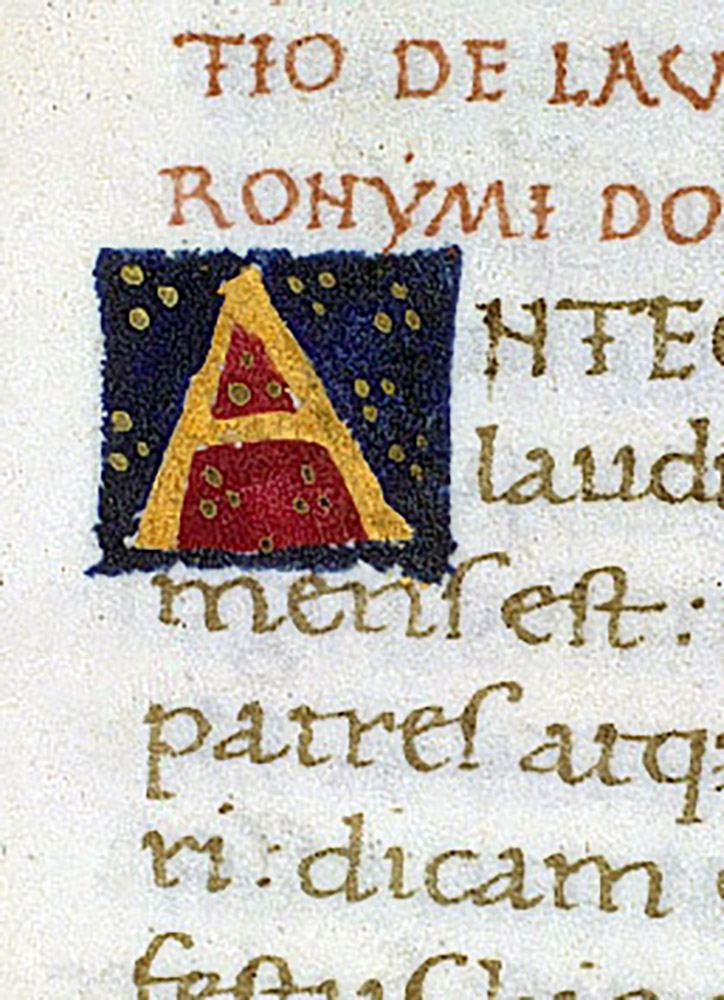 TIO DE LAU
RONYMI DO
ANTEC
laudi
mens est:
patres atq;
ri: dicam
festus hic